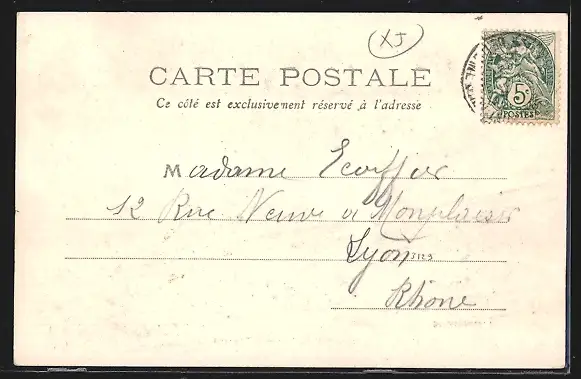 XJ
CARTE POSTALE
Ce côté est exclusivement réservé à l'adresse
5c
POSTES
Madame Ecoiffier
12 Rue Neuve de Monplaisir
Lyon
Rhône